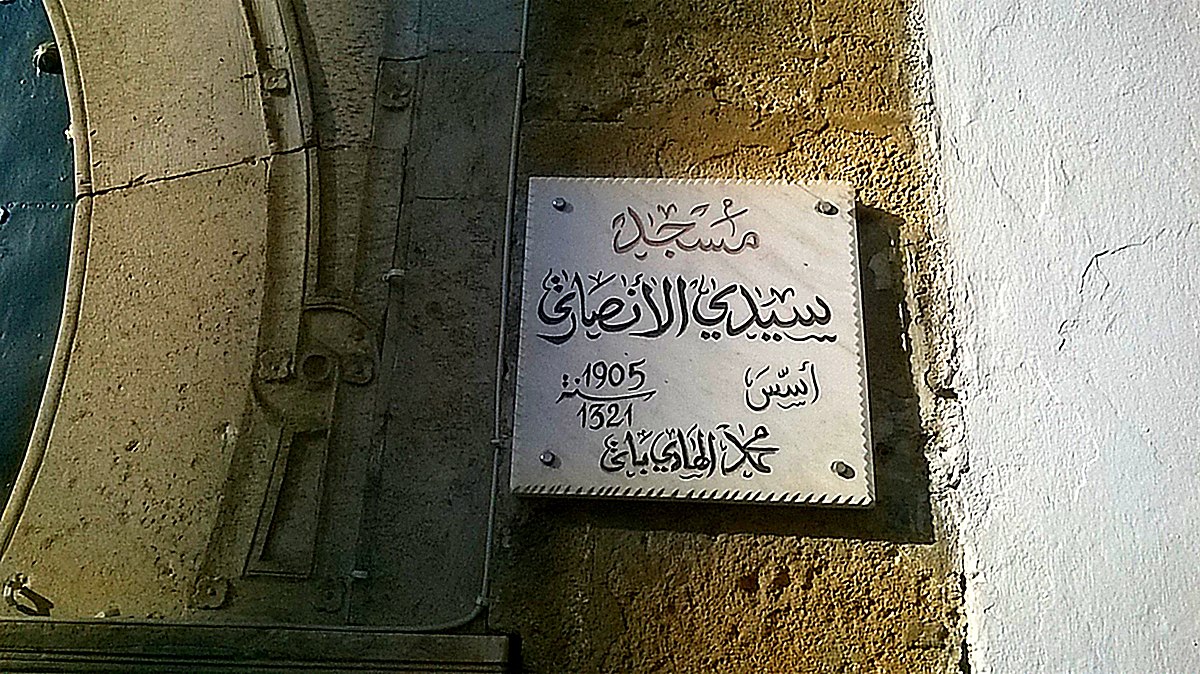 مَسَجَد
سيدي الأنصاري
أسّسَ سنة 1905
1321
محمد الهادي باي